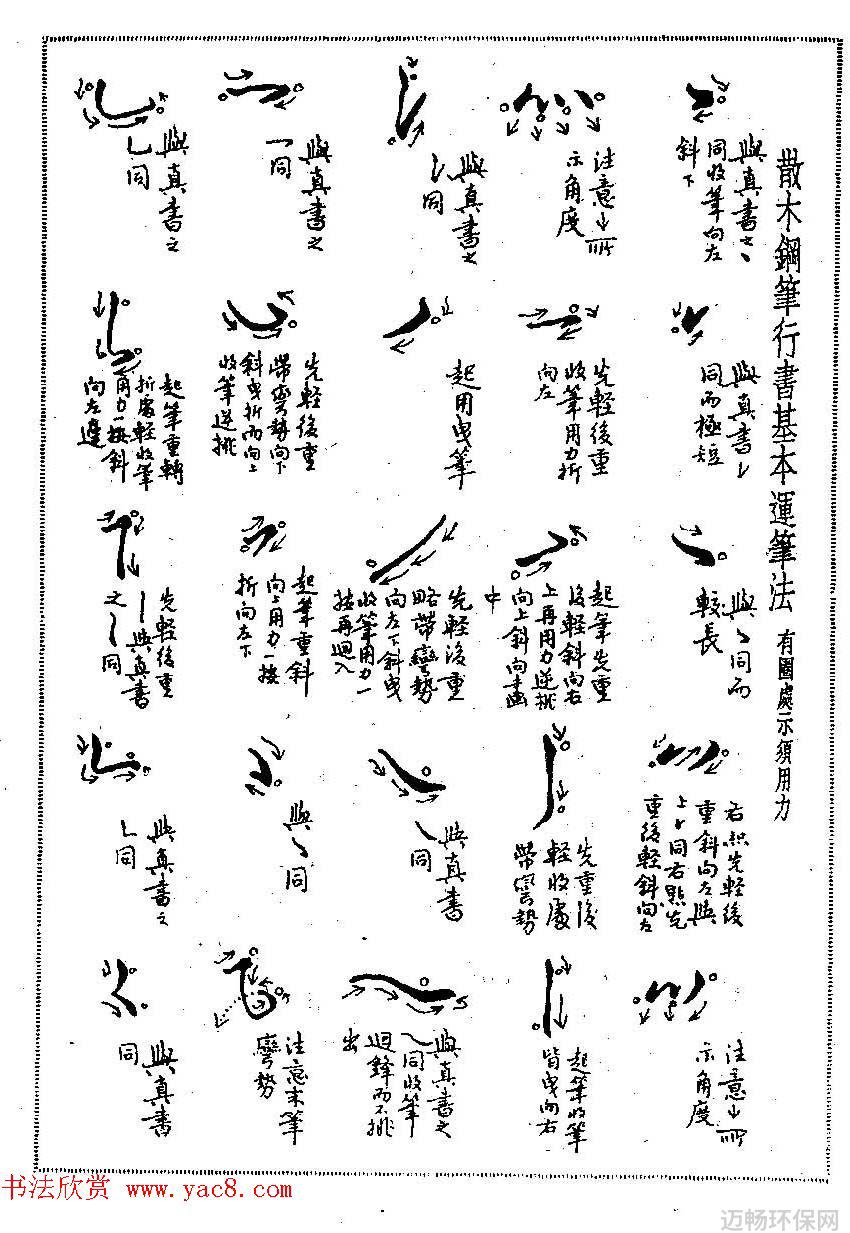 散木鋼筆行書基本運筆法 有圈處示須用力
與真書之丶
同收筆向左
斜下
與真書㇀
同而極短
與㇔同而
較長
右點先輕後
重斜向左與
上㇀同右點先
重後輕斜向左
注意↓所
示角度
注意↓所
示角度
先輕後重
收筆用力折
向左
起筆先重
後輕斜向右
上再用力逆挑
向上斜向畫
中
先重後
輕收處
帶彎勢
起筆收筆
皆曳向右
與真書之
同
起用曳筆
先輕後重
略帶彎勢
向左下斜曳
收筆用力一
按再迴入
與真書
㇏同
與真書之
㇏同收筆
迴鋒而不挑
出
與真書之
一同
先輕後重
帶彎勢向下
斜曳折而向上
收筆逆挑
起筆重斜
向上用力一按
折向左下
與㇔同
注意末筆
彎勢
與真書之
㇄同
起筆重轉
折處輕收筆
用力一按斜
向左邊
先輕後重
丨與真書
之丨同
與真書之
㇄同
與真書
同
书法欣赏 www.yac8.com
迈畅环保网